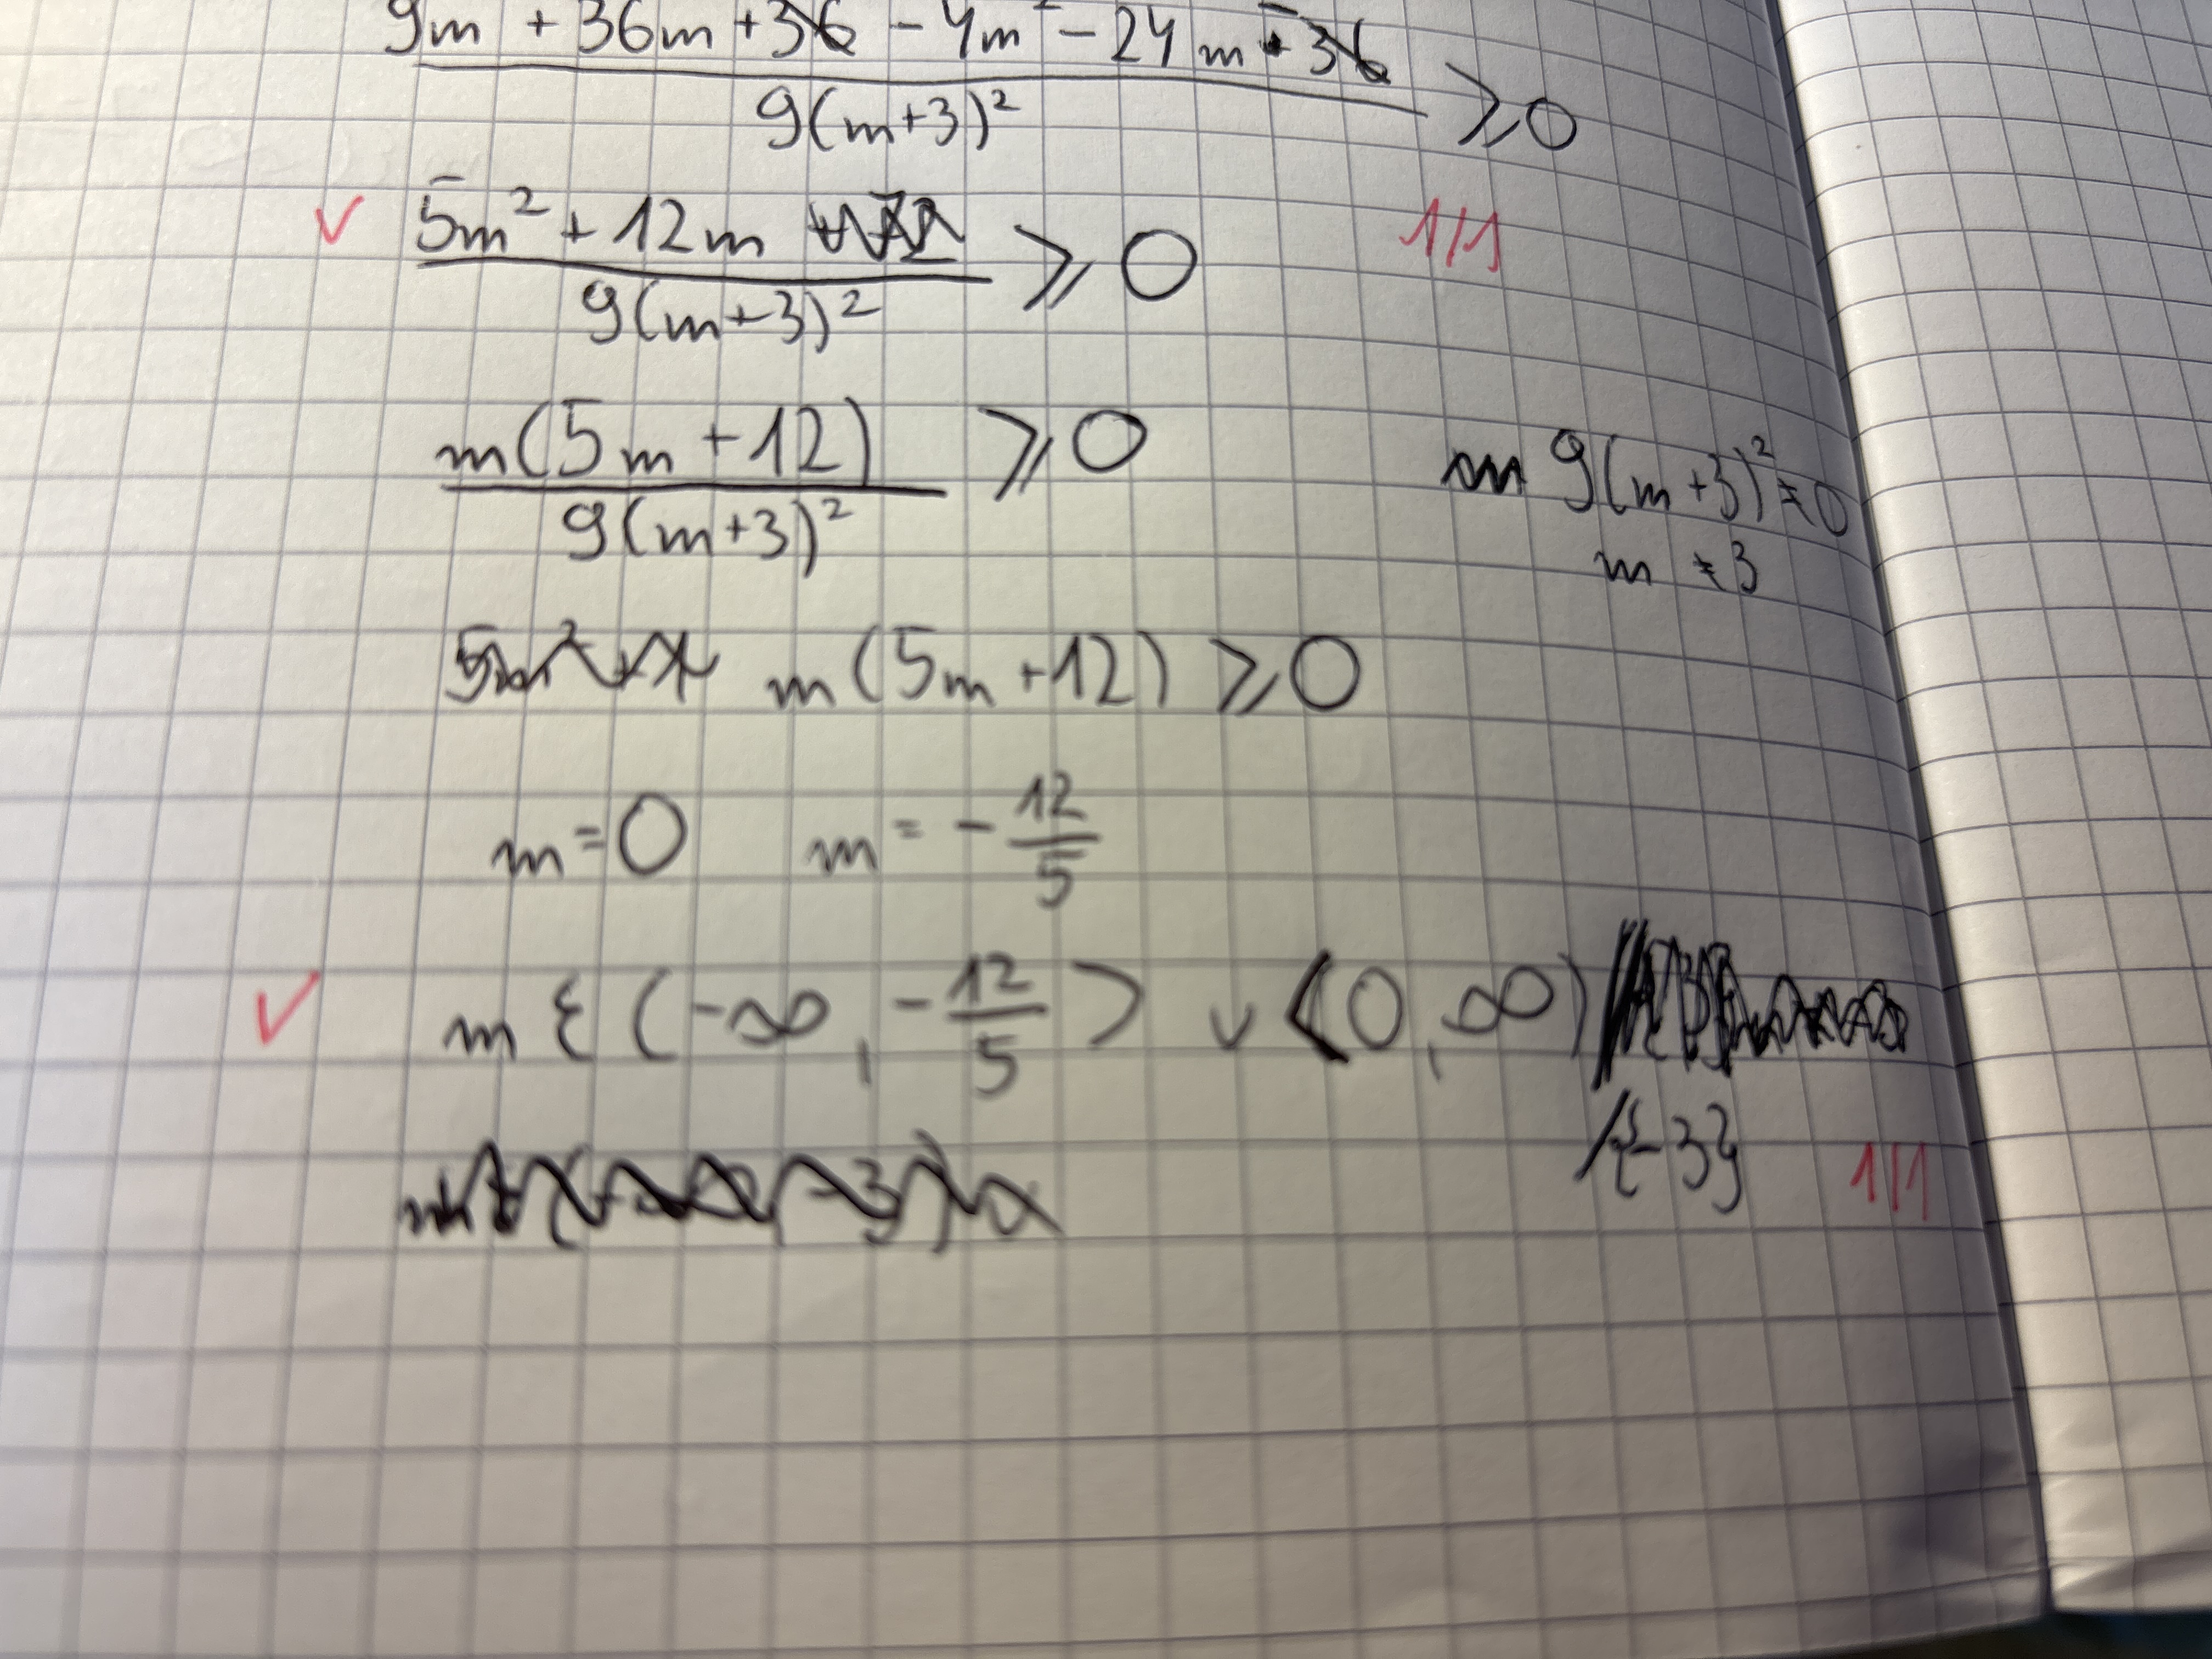 9m² + 36m + 36 - 4m² - 24m - 36
9(m+3)² ⩾ 0
✓ 5m² + 12m ⩾ 0 1/1
9(m+3)²
m(5m + 12) ⩾ 0
9(m+3)²
m 9(m+3)² ≠ 0
m ≠ 3
5m² + m(5m + 12) ⩾ 0
m = 0 m = - 12/5
✓ m ∈ (-∞, - 12/5 > ∨ <0, ∞)
/{-3} 1/1